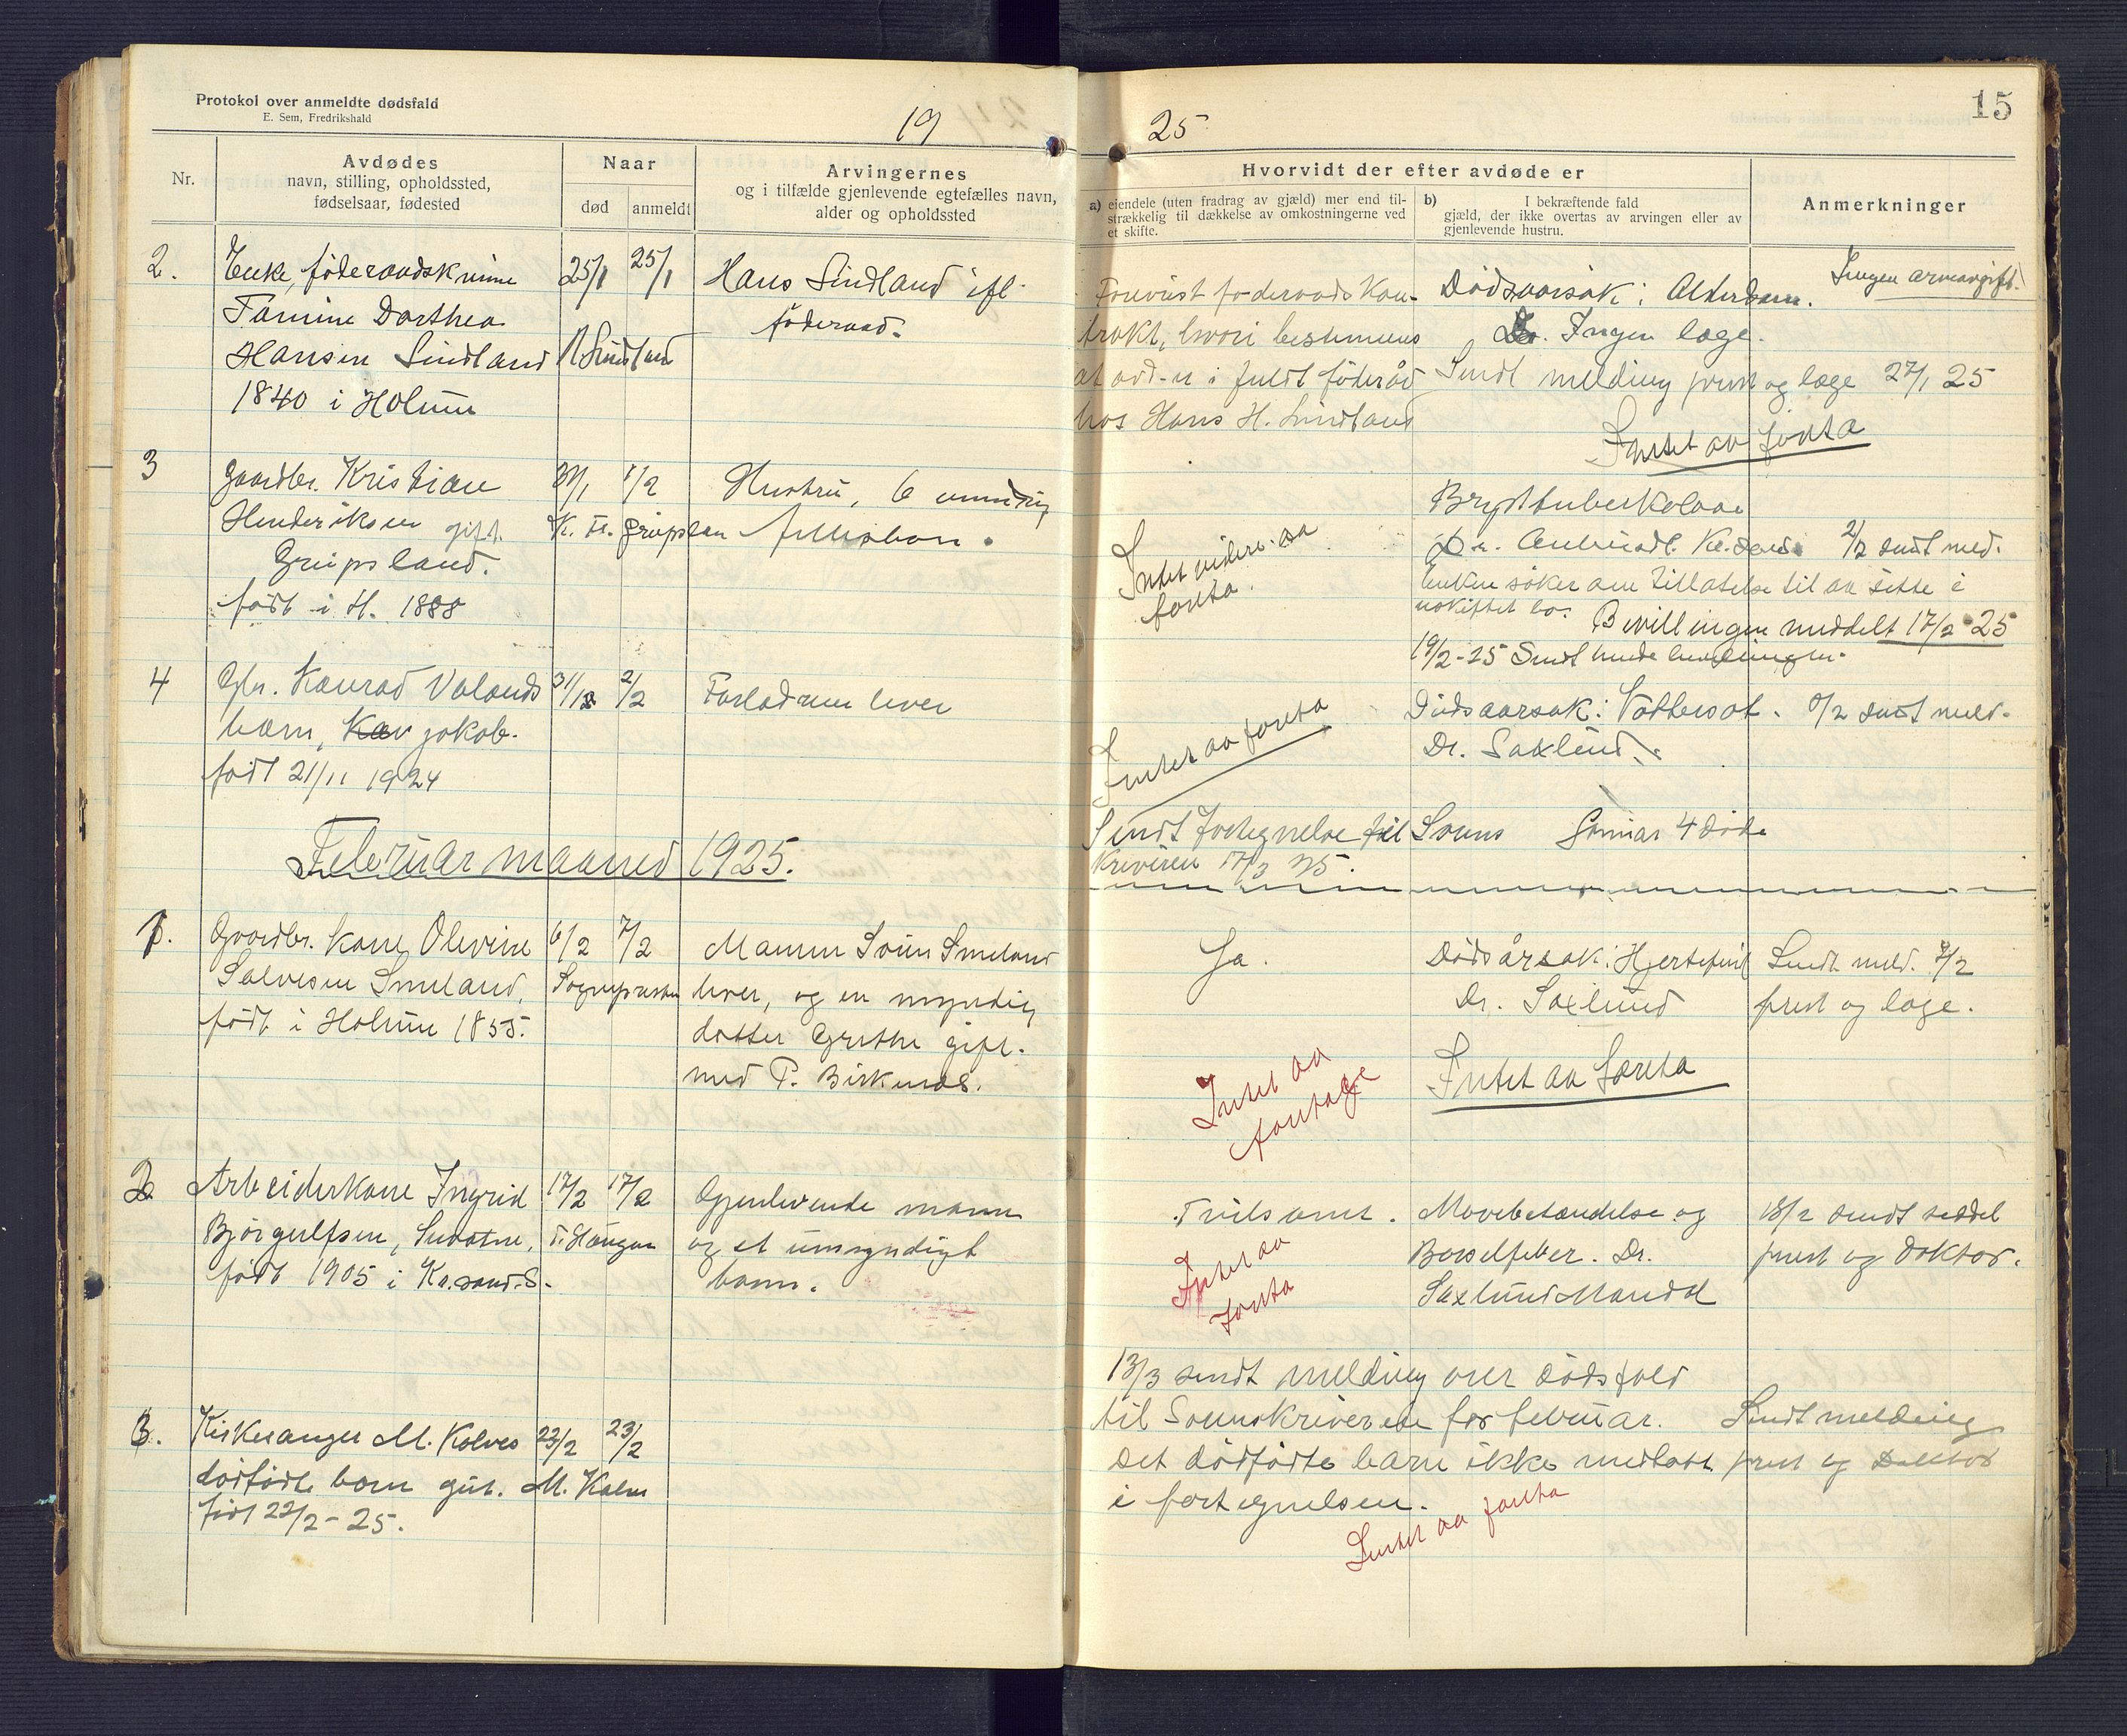 Protokol over anmeldte dødsfald
E. Sem, Fredrikshald
19
25
15
Nr.
Avdødes
navn, stilling, opholdssted,
fødselsaar, fødested
Naar
død
anmeldt
Arvingernes
og i tilfælde gjenlevende egtefælles navn,
alder og opholdssted
Hvorvidt der efter avdøde er
a) eiendele (uten fradrag av gjæld) mer end til-
strækkelig til dækkelse av omkostningerne ved
et skifte.
b) I bekræftende fald
gjæld, der ikke overtas av arvingen eller av
gjenlevende hustru.
Anmerkninger
2.
Enke, føderaadskvinne
Tomine Dorthea
Hansen Sindland
1840 i Holum
25/1
25/1
Sindland
Hans Sindland ifl.
føderaad.
Forevist føderaadskon-
trakt, hvori bestemmes
at avd-n i fuldt føderåd
hos Hans H. Sindland
Dødsaarsak: Alderdom.
Dr. Ingen læge.
Sendt melding prest og læge 27/1 25
Intet aa foreta
Ingen arveavgift
3
Gaardbr. Kristian
Henderiksen gift.
Gripsland.
født i H. 1888
31/1
1/2
K. Fr. Gripsland
Hustru, 6 umyndig
fellesbarn.
Intet videre aa
foreta.
Brysttuberkolose
Dr. Kr.sand. 2/2 sendt med.
Enken søker om tillatelse til aa sitte i
uskiftet bo. Bevillingen meddelt 17/2 25
19/2-25 Sendt hende bevillingen.
4
Gbr. Konrad Valands
barn, Kav Jakob.
født 21/11 1924
31/12
2/2
Forældrene lever
Intet aa foreta
Dødsaarsak: Vattersot. 5/2 sendt meld.
Dr. Saxlund.
Sendt fortegnelse til Sorens
Januar 4 døde
kriveren 17/3 25.
Februar maaned 1925.
1.
Gaardbr. kone Olevine
Salvesen Smeland,
født i Holum 1855.
6/2
7/2
Sogneprsten
Mannen Sven Smeland
lever, og en myndig
datter Grethe gift.
med P. Birkenes.
Ja.
Intet aa
foretage
Dødsårsak: Hjertefeil
Dr. Saxlund
Intet aa foreta
Sendt meld. 7/2
prest og læge.
2
Arbeiderkone Ingrid
Bjørgulfsen,
født 1905 i Kr.sand.S.
17/2
17/2
T. Haugan
Gjenlevende mann
og et umyndigt
barn.
Tvilsomt.
Intet aa
foreta
Mavebetændelse og
Barselfeber. Dr.
Saxlund Mandal
18/2 sendt seddel
prest og doktor.
3.
Kirkesanger M. Kolnes
dødfødt barn gut.
født 22/2-25.
23/2
23/2
M. Kolnes
13/3 sendt melding over dødsfald
til Sorenskriveren for februar.
Det dødfødte barn ikke medtatt
i fortegnelsen.
Intet aa foreta
Sendt melding
prest og Doktor